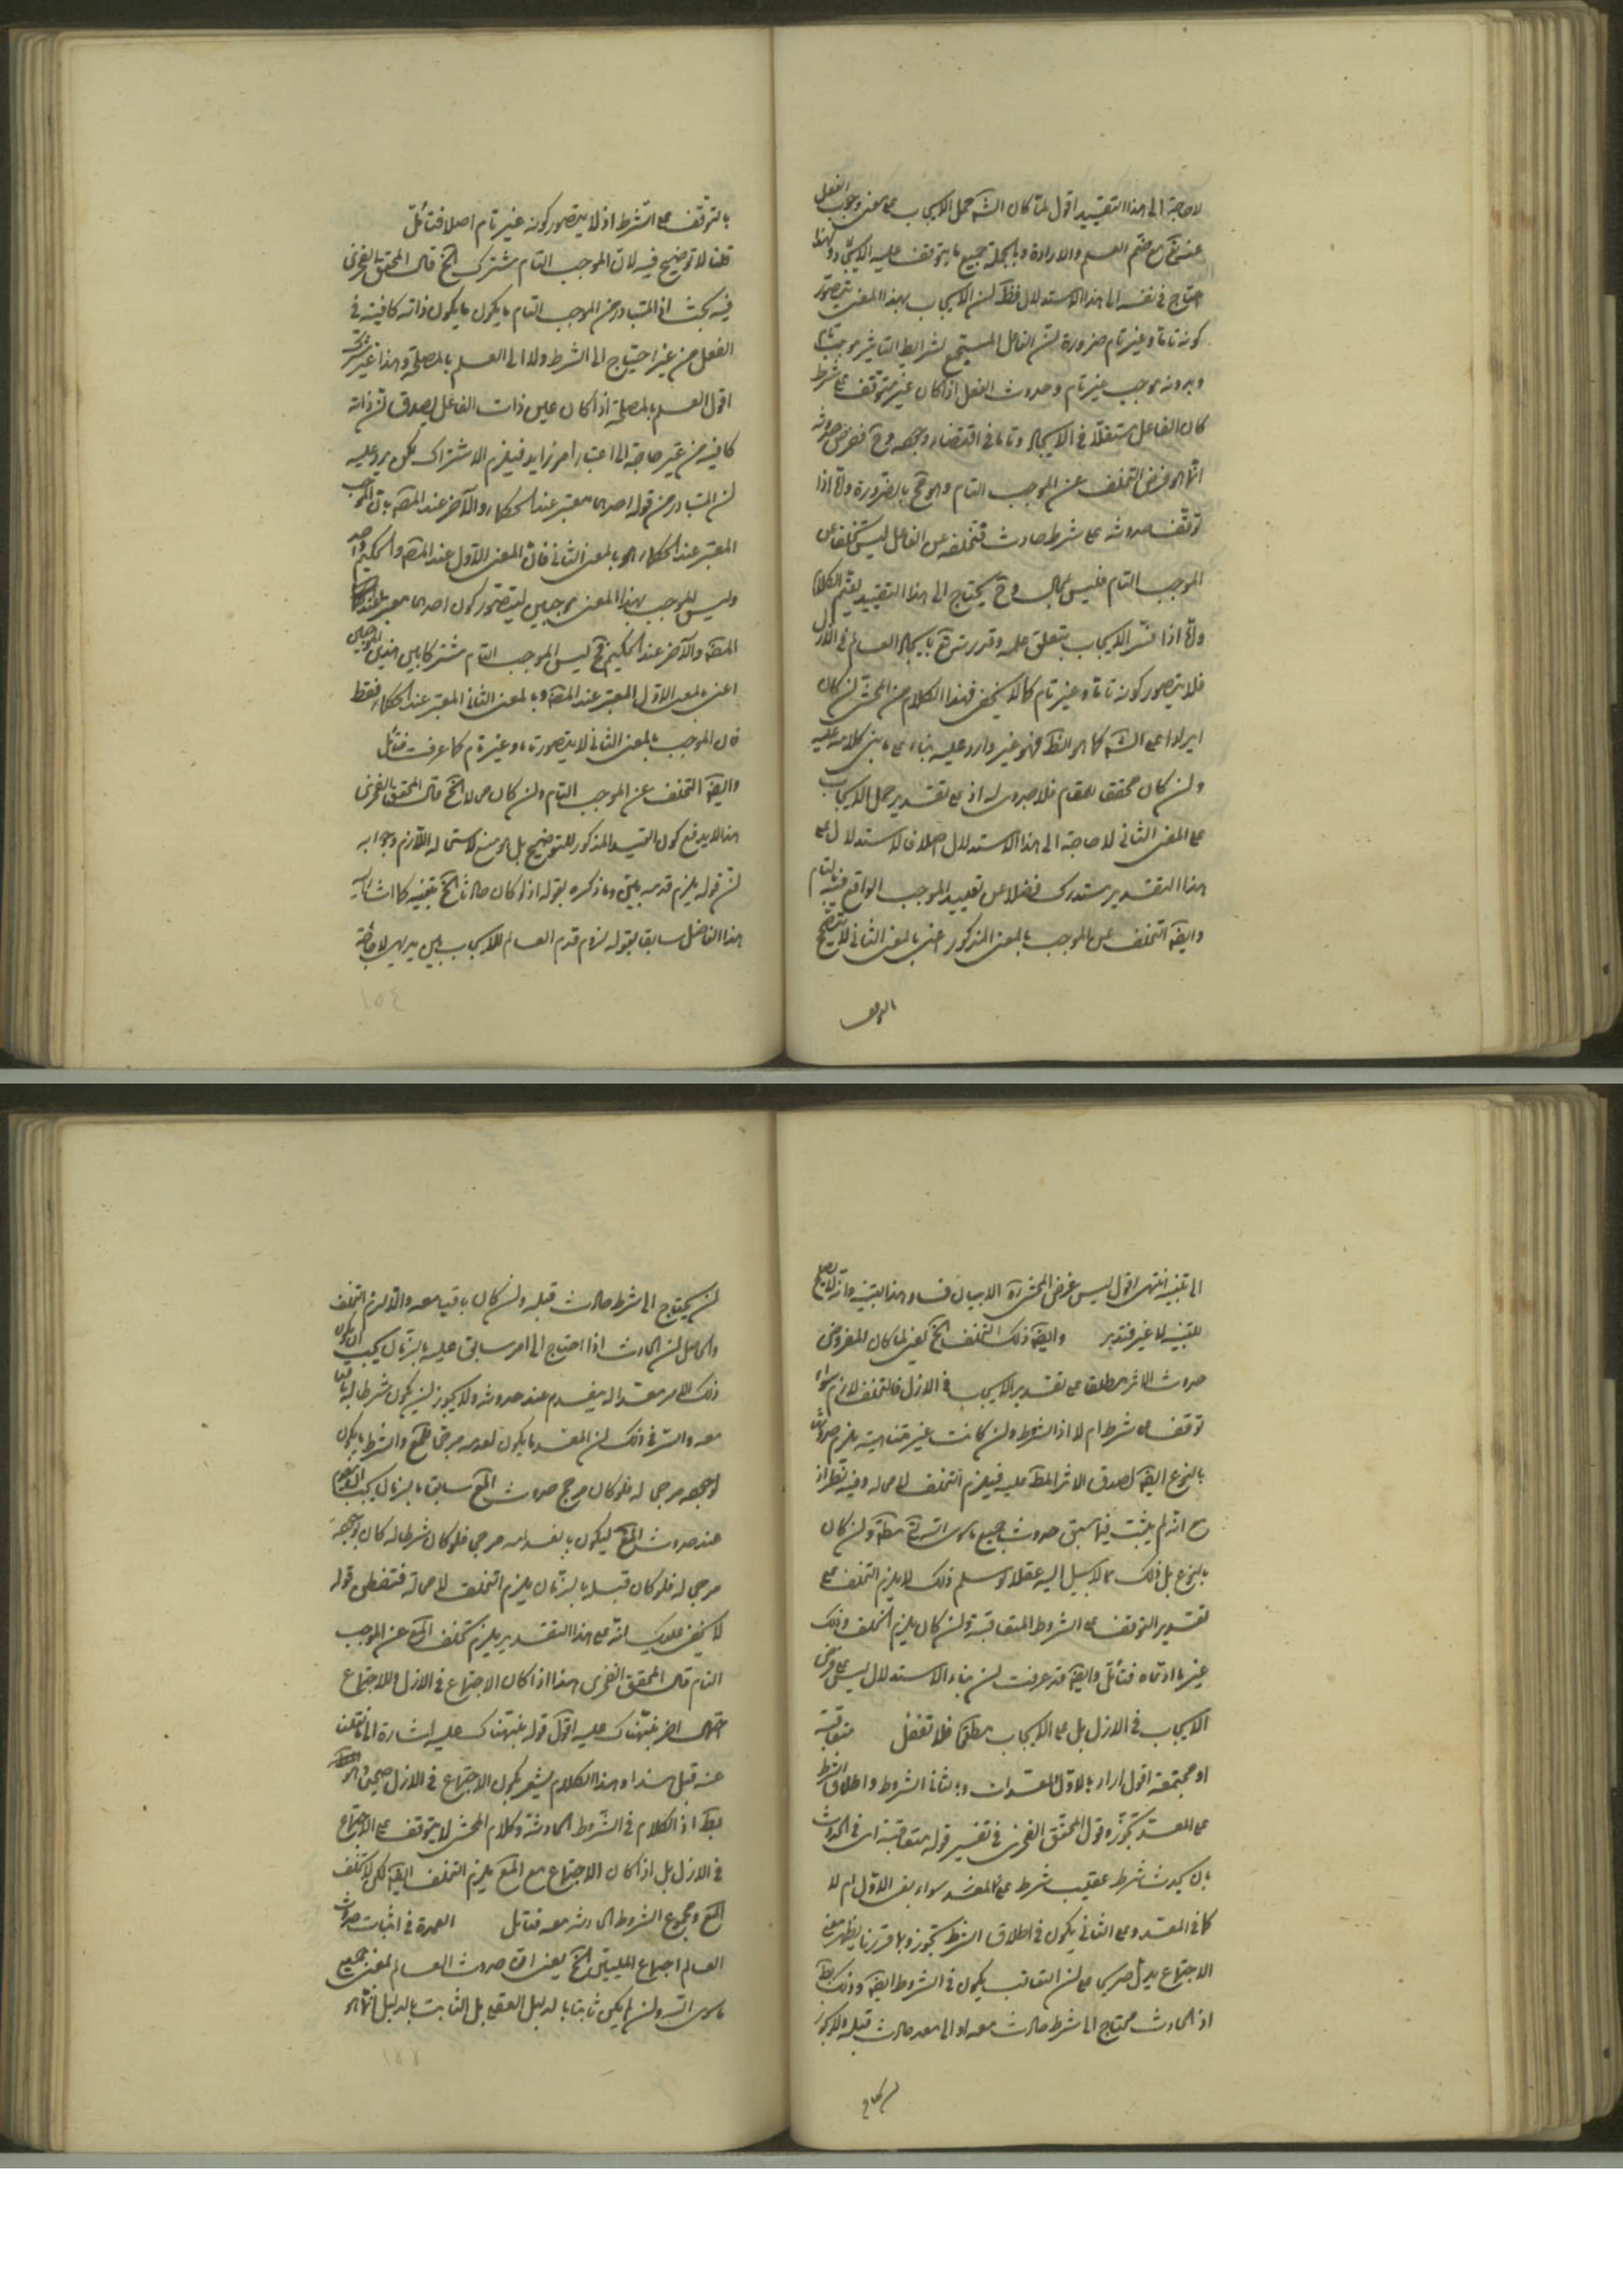 لا حاجة الى هذا التقييد اقول لما كان الشه حمل الايجاب على معنى وجوب الفعل
عنه تع مع ضم العلم والارادة وبالجملة جميع ما يتوقف عليه الايجاد و لهذا
احتاج في نفيه الى هذا الاستدلال فظ لن الايجاب بهذا المعنى يتصور
كونه تاما وغير تام ضرورة لن الفاعل المستجمع لشرايط التاثير موجب تام
وبدونه موجب غير تام وحدوث الفعل اذا كان غير متوقف على شرط
كان الفاعل مستقلا في الايجاد وتاما في اقتضاء وجوده وح ففرض حدوثه
انما هو فرض التخلف عن الموجب التام وهو مح بالضرورة واما اذا
توقف حدوثه على شرط حادث فتخلفه عن الفاعل ليس تخلفا عن
الموجب التام فليس بمحال وح يحتاج الى هذا التقييد ليتم الكلام
واما اذا فسر الايجاب بتعلق علمه وقدرته تع بايجاد العالم في الازل
فلا يتصور كونه تاما وغير تام كما لا يخفى فهذا الكلام من المحشى لن كان
ايرادا على الشه كما هو الظ فهو غير وارد عليه بناء على ما بنى كلامه عليه
ولن كان تحقيق المقام فلا جدوى له اذ على تقدير حمل الايجاب
على المعنى الثاني لا حاجة الى هذا الاستدلال اصلا فالاستدلال على
هذا التقدير مستدرك فضلا عن تقييد الموجب الواقع فيه بالتام
وايضه التخلف عن الموجب بالمعنى المذكور اعني بالمعنى الثاني لا يتضح
بالتوقف
بالتوقف على الشرط اذ لا يتصور كونه غير تام اصلا فتأمل
قلنا لا توضيح فيه لان الموجب التام مشترك الخ قال المحقق الفخرى
فيه بحث اذ المتبادر من الموجب التام ما يكون ما يكون ذاته كافية في
الفعل من غير احتياج الى الشرط ولا الى العلم بالمصلحة وهذا غير مشترك
اقول العلم بالمصلحة اذا كان عين ذات الفاعل يصدق لن ذاته
كافية من غير حاجة الى اعتبار امر زايد فيلزم الاشتراك لكن يرد عليه
لن المتبادر من قوله احدى معتبر عند الحكماء والآخر عند المصه بان الموجب
المعتبر عند الحكماء هو بالمعنى الثاني فان المعنى الاول عند المصه والحكيم واحد
وليس للموجب بهذا المعنى موجبين ليتصور كون احدى معتبر عند
المصه والآخر عند الحكيم فح ليس الموجب التام مشتركا بين هذين الموجبين
اعني بالمعنى الاول المعتبر عند المصه وبالمعنى الثاني المعتبر عند الحكماء فقط
فان الموجب بالمعنى الثاني لا يتصور تاما وغير تام كما عرفت فتأمل
وايضه التخلف عن الموجب التام ولن كان محالا الخ قال المحقق الفخرى
هذا لا يدفع كون القيد المذكور للتوضيح بل هو منع لاستحالة اللازم وجوابه
لن قوله يلزم قدمه بيني وما ذكره بقوله اذ لو كان حادثا الخ تنبيه كما اشار اليه
هذا الفاضل سابقا بقوله لزوم قدم العالم للايجاب بين بديهي لا حاجة
١٥٤
الى تنبيه انتهى اقول ليس غرض المحشى ره الا بيان فساد هذا التنبيه وانه لا يصلح
للتنبيه لا غير فتدبر وايضه ذلك التخلف الخ يعني لما كان المفروض
حدوث الاثر مطلقا على تقدير الايجاب في الازل فالتخلف لازم سواء
توقف على شرط ام لا اذ الشروط ولن كانت غير متناهية يلزم حدوثها
بالنوع ايضه لصدق الاثر المط عليه فيلزم التخلف لا محالة وفيه نظر اذ
مع انه لم يثبت فيما سبق حدوث جميع ما سوى الله تع مطلقا ولن كان
بالنوع بل ذلك مما لا سبيل اليه عقلا لو سلم ذلك لا يلزم التخلف على
تقدير التوقف على الشروط المتعاقبة ولن كان يلزم الخلف وذلك
غير ما ادعاه فتأمل وايضه قد عرفت لن بناء الاستدلال ليس على فرض
الايجاب في الازل بل على الايجاب مطلقا فلا تغفل متعاقبة
او مجتمعة اقول اراد بالاول المعدات وبالثاني الشروط واطلاق الشرط
على المعد تجوز وقول المحقق الفخرى في تفسير قوله متعاقبة اى في الحدوث
بان يحدث شرط عقيب شرط على المعد سواء بقى الاول ام لا
كما في المعد وعلى الثاني يكون في اطلاق الشرط تجوز وبما قررنا يظهر معنى
الاجتماع يدل صريحا على لن التعاقب يكون في الشروط ايضه وذلك بط
اذ الحادث محتاج الى شرط حادث معه او الى معد حادث قبله ولا يجوز
لن يحتاج
لن يحتاج الى شرط حادث قبله ولن كان باقيا معه والا لزم التخلف
والحاصل لن الحادث اذا احتاج الى امر سابق عليه بالزمان يجب ان يكون
ذلك الامر معدا له ينعدم عند حدوثه ولا يجوز لن يكون شرطا له باقيا
معه والسر في ذلك لن المعد ما يكون لعدمه مرجحا للمع والشرط ما يكون
لوجوده مرجحا له فلو كان مرجح حدوث المع سابقا بالزمان يجب انعدامه
عند حدوث المع ليكون بانعدامه مرجحا فلو كان شرطا له كان لوجوده
مرجحا له فلو كان قبله بالزمان يلزم التخلف لا محالة فتفطن قوله
لا يخفى عليك انه على هذا التقدير يلزم تخلف المع عن الموجب
التام قال المحقق الفخرى هذا اذا كان الاجتماع في الازل وللاجتماع
احتمال آخر نبهناك عليه اقول قوله نبهناك عليه اشارة الى ما نقلنا
عنه قبل هذا وهذا الكلام يشعر بكون الاجتماع في الازل صحيحا وهو
بط اذ الكلام في الشروط الحادثة وكلام المحشى لا يتوقف على الاجتماع
في الازل بل اذا كان الاجتماع مع المع يلزم التخلف ايضه لكن لا تخلف
المع ومجموع الشروط الحادثة معه فتأمل العمدة في اثبات حدوث
العالم اجماع المليين الخ يعني ان حدوث العالم بمعنى جميع
ما سوى الله ولن لم يكن ثابتا بالدليل العقلى بل الثابت بالدليل انما هو